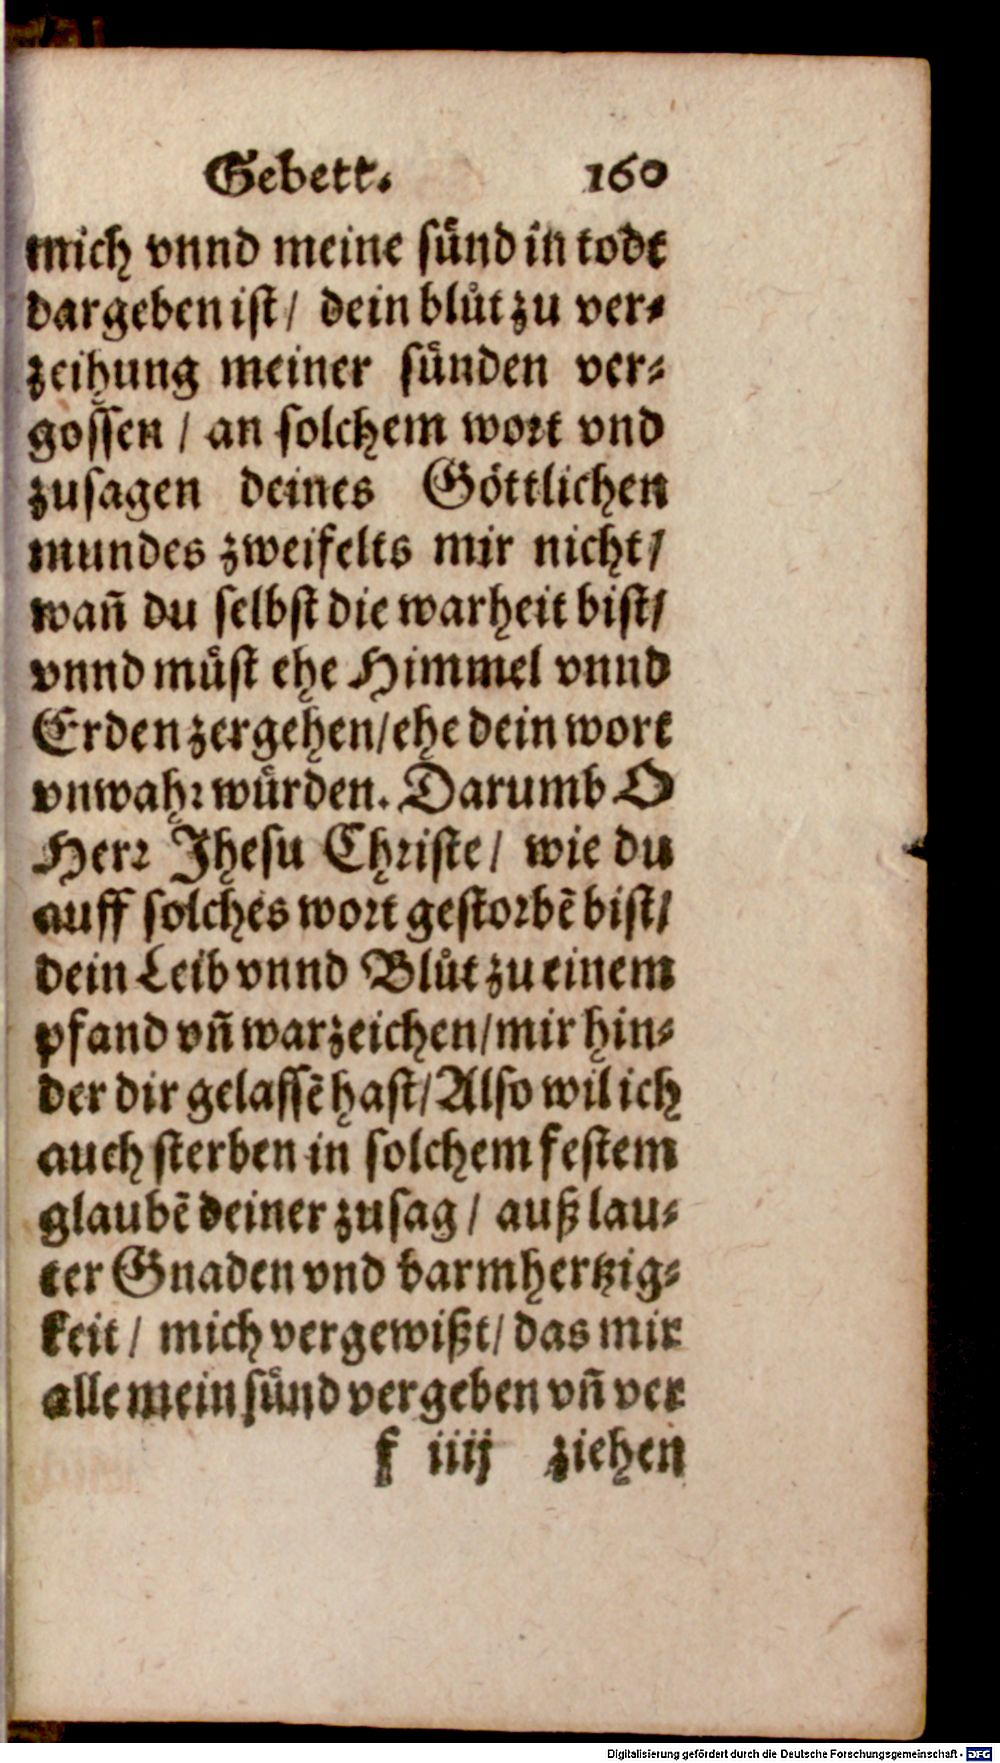 Gebett. 160
mich vnnd meine sünd in todt
dargeben ist/ dein blůt zu ver⸗
zeihung meiner sünden ver⸗
gossen / an solchem wort vnd
zusagen deines Göttlichen
mundes zweifelts mir nicht/
wañ du selbst die warheit bist/
vnnd müst ehe Himmel vnnd
Erden zergehen/ehe dein wort
vnwahr würden. Darumb O
Herr Jhesu Christe/ wie du
auff solches wort gestorbẽ bist/
dein Leib vnnd Blůt zu einem
pfand vñ warzeichen/mir hin⸗
der dir gelassẽ hast/Also wil ich
auch sterben in solchem festem
glaubẽ deiner zusag / auß lau⸗
ter Gnaden vnd barmhertzig⸗
keit/ mich vergewißt/ das mir
alle mein sünd vergeben vñ ver
f iiij ziehen
Digitalisierung gefördert durch die Deutsche Forschungsgemeinschaft - DFG